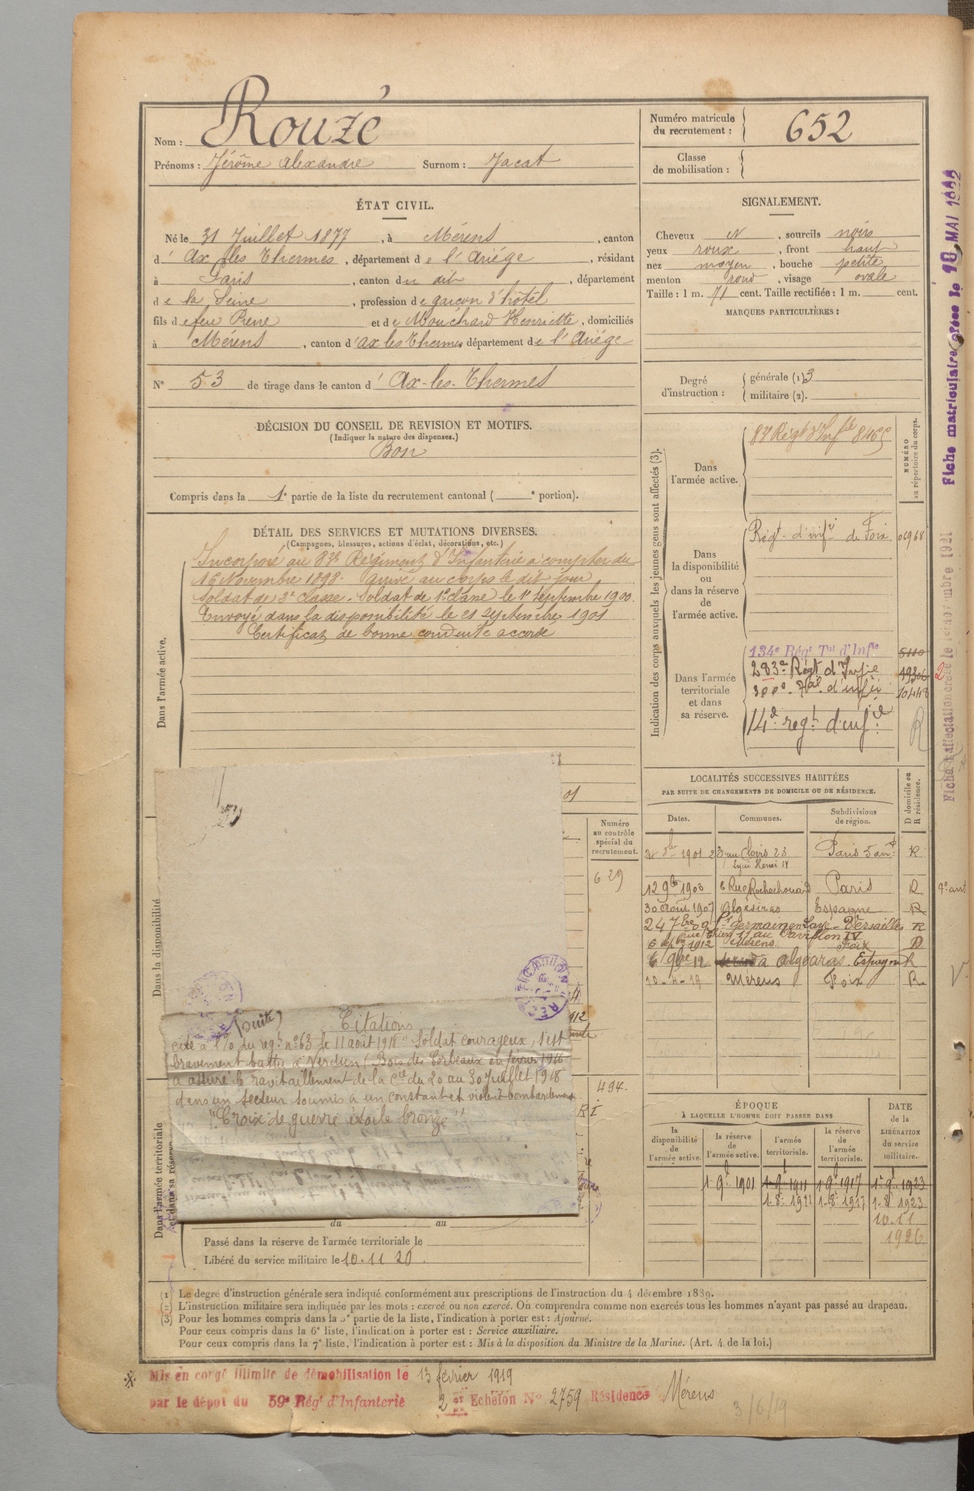 Nom : Rouzé
Prénoms : Jérôme Alexandre Surnom : Jacat
Numéro matricule du recrutement : 652
Classe de mobilisation :
ÉTAT CIVIL.
Né le 31 Juillet 1877, à Mérens, canton
d' Ax les Thermes, département de l'Ariége, résidant
à Paris, canton du dit, département
de la Seine, profession de garçon d'hôtel
fils de feu Rene et de Mouchard Henriette, domiciliés
à Mérens, canton d'ax les Thermes département de l'Ariége
N° 53 de tirage dans le canton d' Ax-les-Thermes
SIGNALEMENT.
Cheveux N, sourcils noirs
yeux roux, front haut
nez moyen, bouche petite
menton rond, visage ovale
Taille : 1 m. 71 cent. Taille rectifiée : 1 m. cent.
MARQUES PARTICULIÈRES :
Degré d'instruction : générale (1) 3
militaire (2).
DÉCISION DU CONSEIL DE REVISION ET MOTIFS.
(Indiquer la nature des dispenses.)
Bon
Compris dans la 1e partie de la liste du recrutement cantonal ( e portion).
DÉTAIL DES SERVICES ET MUTATIONS DIVERSES.
(Campagnes, blessures, actions d'éclat, décorations, etc.)
Dans l'armée active.
Incorporé au 83e Régiment d'Infanterie à compter du
16 Novembre 1898. Arrivé au corps le dit jour
Soldat de 2e classe. Soldat de 1e classe le 1er Septembre 1900
Envoyé dans la disponibilité le 21 Septembre 1901
Certificat de bonne conduite accordé
Indication des corps auxquels les jeunes gens sont affectés (3).
NUMÉRO au répertoire du corps.
Dans l'armée active.
83e Régt d'Inftie
Dans la disponibilité ou dans la réserve de l'armée active.
Régt d'infie de Foix
Dans l'armée territoriale et dans sa réserve.
134e Régt Tal d'Infie 5110
283e Régt d'Infie
300e Tal d'infie
14e regt d'infie R
LOCALITÉS SUCCESSIVES HABITÉES
PAR SUITE DE CHANGEMENTS DE DOMICILE OU DE RÉSIDENCE.
Dates. Communes. Subdivisions de région. D domicile ou R résidence.
1901 Paris R
Lycée Henri IV
12 9bre 1903 6 Rue Rochechouart Paris R
30 août 1907 Algésiras Espagne R
24 7bre 09 St Germain en Laye Versailles R
Pavillon H. IV
1912 Mérens Foix D
6 9bre 12 à Algésiras Espagne R
10-4-19 Mérens Foix R
Numéro au contrôle spécial du recrutement.
629
494.
Dans la disponibilité
(Suite) Citations
cité à l'o. du régt n° 63 le 11 août 1918 "Soldat courageux, s'est
bravement battu à Verdun (Bois des Corbeaux en février 1916
a assuré le ravitaillement de la Cie du 20 au 30 Juillet 1918
dans un secteur soumis à un constant et violent bombardement
"Croix de guerre étoile bronze"
Dans l'armée territoriale et dans sa réserve
du au
Passé dans la réserve de l'armée territoriale le
Libéré du service militaire le 10.11.20.
ÉPOQUE
À LAQUELLE L'HOMME DOIT PASSER DANS
la disponibilité de l'armée active. la réserve de l'armée active. l'armée territoriale. la réserve de l'armée territoriale.
DATE de la LIBÉRATION du service militaire.
1 9e 1901 1 9e 1911 1 9e 1917 1 9e 1923
1.8e 1911 1.8e 1917 1.8e 1923
10.11
1926
(1) Le degré d'instruction générale sera indiqué conformément aux prescriptions de l'instruction du 4 décembre 1889.
(2) L'instruction militaire sera indiquée par les mots : exercé ou non exercé. On comprendra comme non exercés tous les hommes n'ayant pas passé au drapeau.
(3) Pour les hommes compris dans la 5e partie de la liste, l'indication à porter est : Ajourné.
Pour ceux compris dans la 6e liste, l'indication à porter est : Service auxiliaire.
Pour ceux compris dans la 7e liste, l'indication à porter est : Mis à la disposition du Ministre de la Marine. (Art. 4 de la loi.)
Mis en congé illimité de démobilisation le 13 février 1919
par le dépot du 59e Régt d'Infanterie 2e Echelon N° 2759 Résidence Mérens
3/6/19
Fiche matriculaire créée le 10 MAI